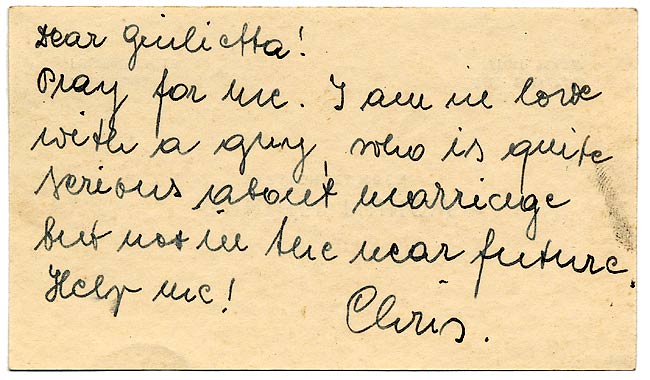 Dear Giulietta!
Pray for me. I am in love
with a guy, who is quite
serious about marriage
but not in the near future.
Help me!
Chris.